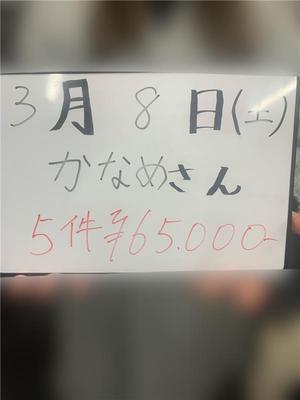 3月8日(土)
かなめさん
5件¥65.000-